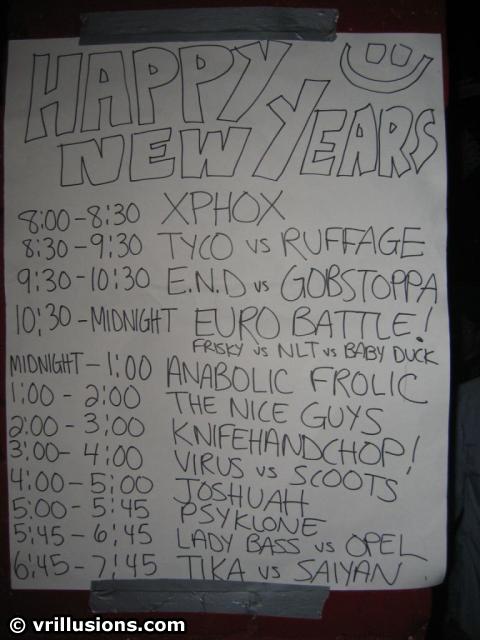 HAPPY
NEW YEARS
8:00-8:30 XPHOX
8:30-9:30 TYCO vs RUFFAGE
9:30-10:30 E.N.D vs GOBSTOPPA
10:30-MIDNIGHT EURO BATTLE!
FRISKY vs NLT vs BABY DUCK
MIDNIGHT-1:00 ANABOLIC FROLIC
1:00-2:00 THE NICE GUYS
2:00-3:00 KNIFEHANDCHOP!
3:00-4:00 VIRUS vs SCOOTS
4:00-5:00 JOSHUAH
5:00-5:45 PSYKLONE
5:45-6:45 LADY BASS vs OPEL
6:45-7:45 TIKA vs SAIYAN
© vrillusions.com